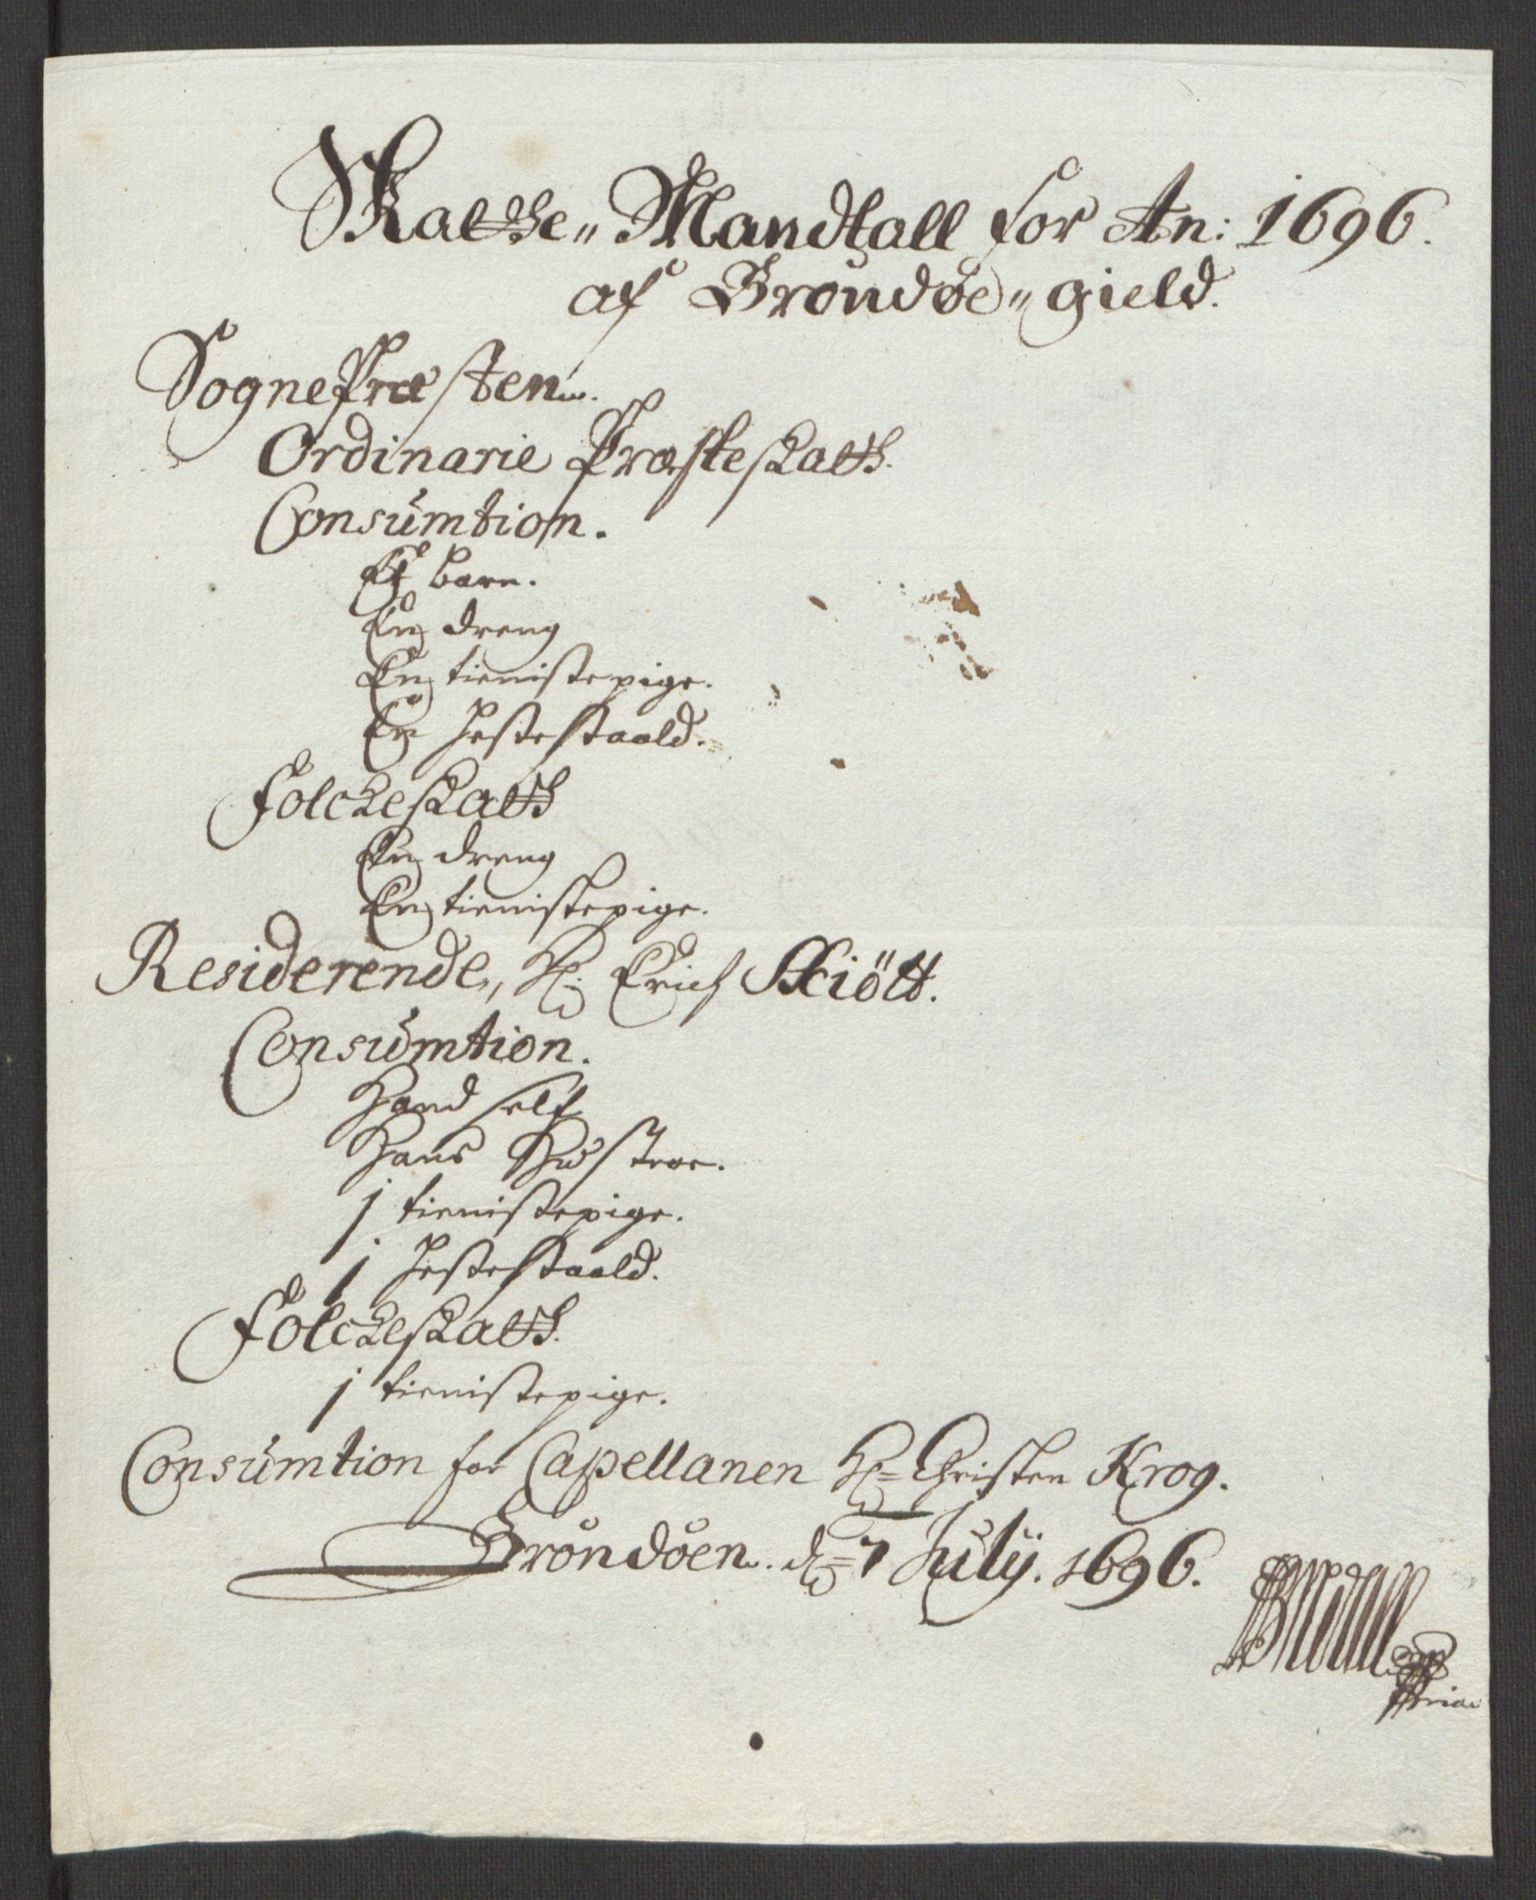 Skatte„ Mandtall for An: 1696.
af Brøndøe„ gield.
SognePræsten.
Ordinarie Præsteskatt.
Consumtion.
Et barn.
En dreng
En tienistepige.
En hestestaald.
Folckeskatt
En dreng
En tienistepige.
Residerende, Hr: Erich Skiött.
Consumtion.
Hand self
Hans Hustroe.
j tienistepige.
j hestestaald.
Folckeskatt.
j tienistepige.
Consumtion for Capellanen Hr= Christen Krog.
Brøndøen. d= 7 Julÿ. 1696.